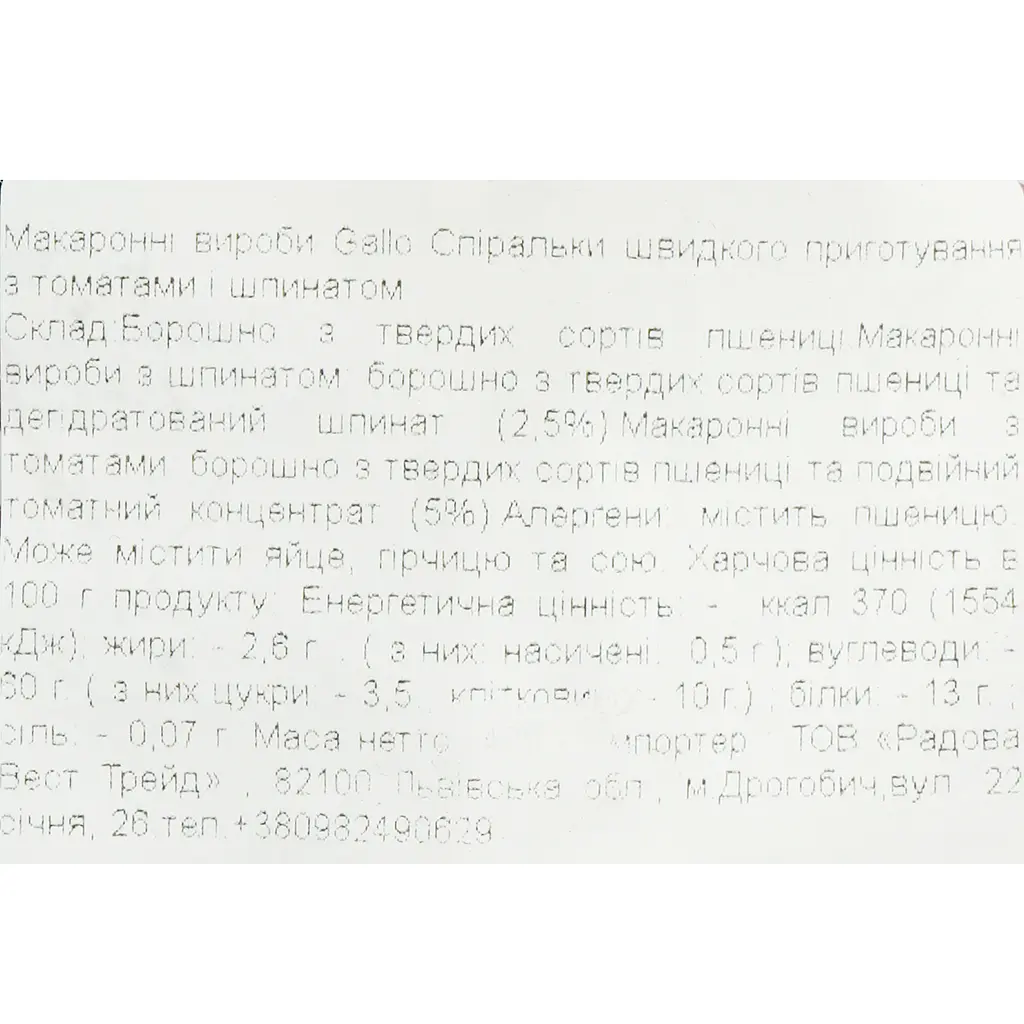 Макаронні вироби Gallo Спіральки швидкого приготування
з томатами і шпинатом
Склад:Борошно з твердих сортів пшениці.Макаронні
вироби з шпинатом: борошно з твердих сортів пшениці та
дегідратований шпинат (2,5%).Макаронні вироби з
томатами: борошно з твердих сортів пшениці та подвійний
томатний концентрат (5%).Алергени: містить пшеницю.
Може містити яйце, гірчицю та сою. Харчова цінність в
100 г продукту: Енергетична цінність: - ккал 370 (1554
кДж); жири: - 2,6 г . ( з них: насичені: 0,5 г ); вуглеводи: -
60 г. ( з них цукри: - 3,5, - 10 г.) ; білки: - 13 г. ;
сіль: - 0,07 г. Маса нетто: мпортер : ТОВ «Радова
Вест Трейд» , 82100,Львівська обл., м.Дрогобич,вул. 22
січня, 26.тел.+380982490629